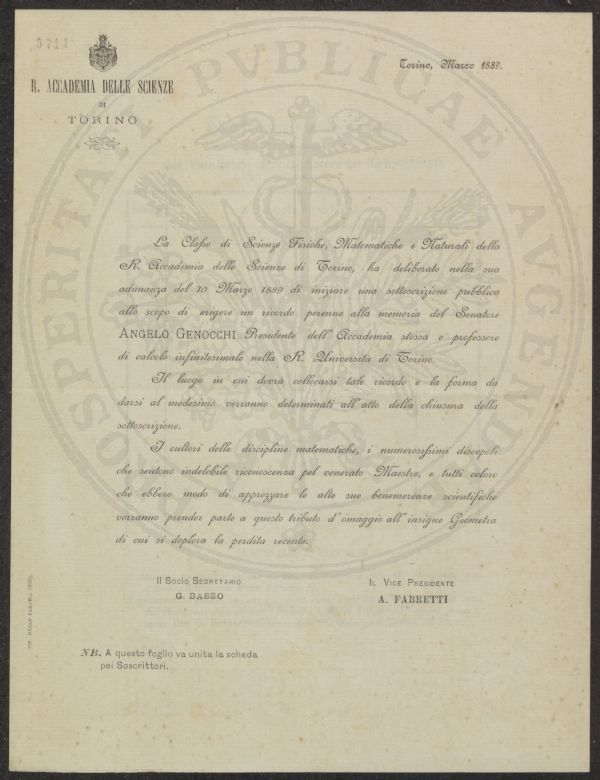 5711
R. ACCADEMIA DELLE SCIENZE
DI
TORINO
Torino, Marzo 1889.
PROSPERITATI PVBLICAE AVGENDAE
La Classe di Scienze Fisiche, Matematiche e Naturali della
R. Accademia delle Scienze di Torino, ha deliberato nella sua
adunanza del 10 Marzo 1889 di iniziare una sottoscrizione pubblica
allo scopo di erigere un ricordo perenne alla memoria del Senatore
ANGELO GENOCCHI Presidente dell'Accademia stessa e professore
di calcolo infinitesimale nella R. Università di Torino.
Il luogo in cui dovrà collocarsi tale ricordo e la forma da
darsi al medesimo verranno determinati all'atto della chiusura della
sottoscrizione.
I cultori delle discipline matematiche, i numerosissimi discepoli
che sentono indelebile riconoscenza pel venerato Maestro, e tutti coloro
che ebbero modo di apprezzare le alte sue benemerenze scientifiche
vorranno prender parte a questo tributo d'omaggio all'insigne Geometra
di cui si deplora la perdita recente.
Il Socio Segretario
G. BASSO
IL VICE PRESIDENTE
A. FABRETTI
NB. A questo foglio va unita la scheda
pei Soscrittori.